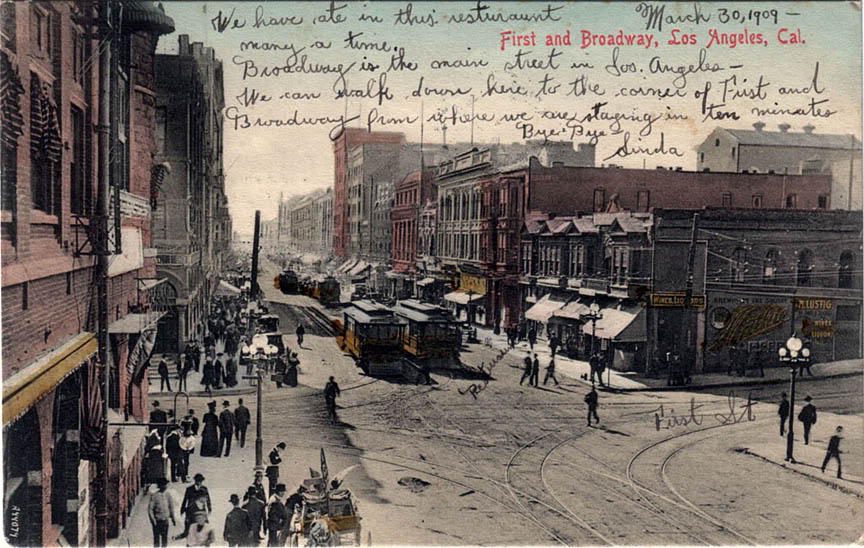 We have ate in this resturaunt
March 30, 1909 -
many a time.
First and Broadway, Los Angeles, Cal.
Broadway is the main street in Los. Angeles -
We can walk down here to the corner of First and
Broadway from where we are staying in ten minutes
Bye-Bye
Linda
WINES, LIQUORS
M. LUSTIG
WINES
LIQUORS
Restaurant
First St